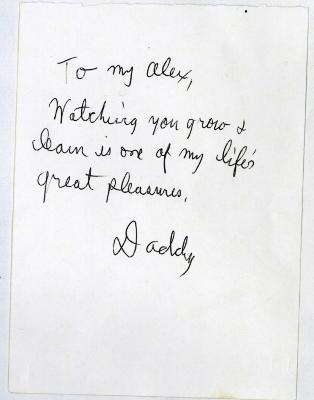 To my Alex,
Watching you grow &
learn is one of my life's
great pleasures.
Daddy